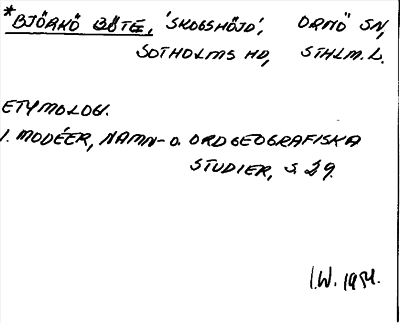 *BJÖRKÖ BÖTE, 'SKOGSHÖJD', ORNÖ SN,
SOTHOLMS HD, STHLM.L.
ETYMOLOGI.
I. MODÉER, NAMN- O. ORDGEOGRAFISKA
STUDIER, S. 29.
I.W. 1954.